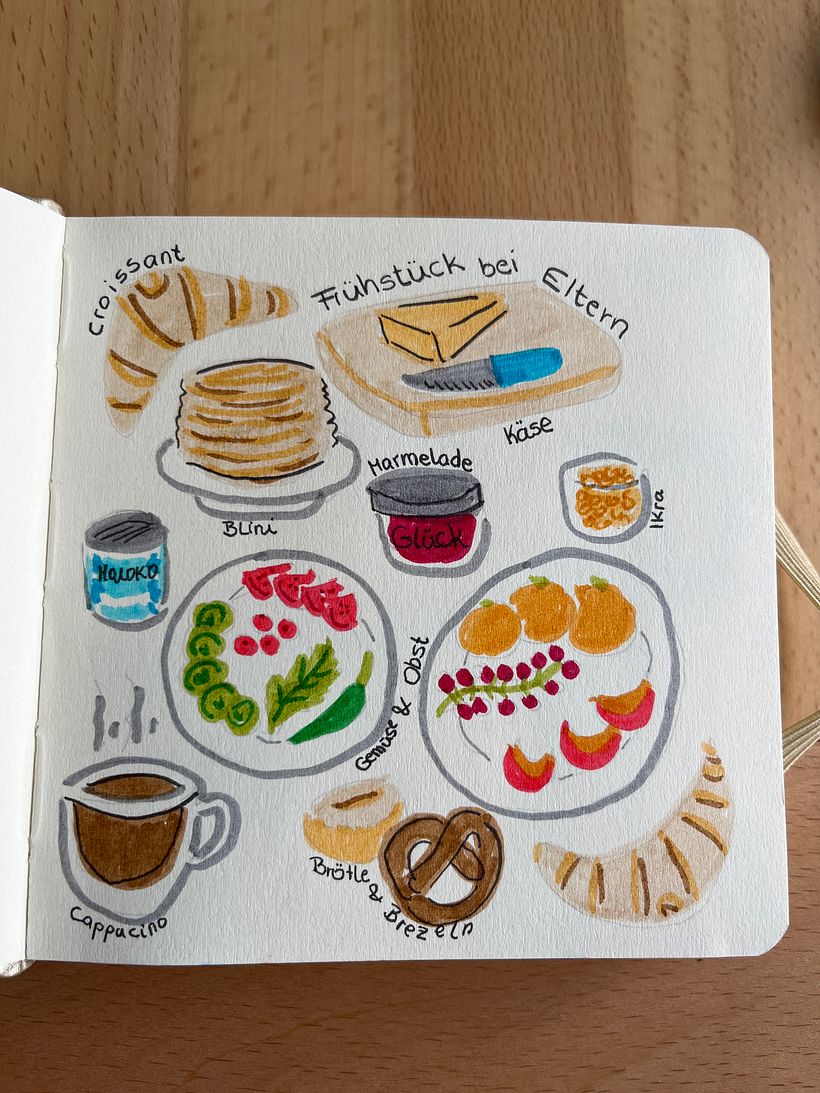 Croissant
Frühstück bei Eltern
Käse
BLini
Marmelade
Glück
Ikra
Молоко
Gemüse & Obst
Brötle
& Brezeln
Cappucino